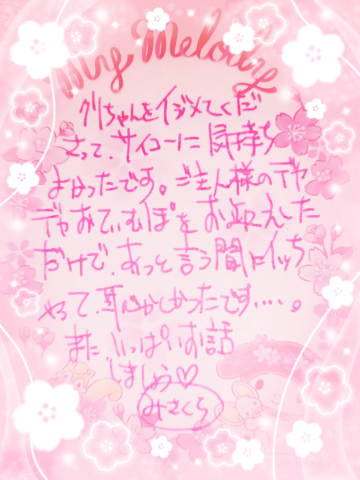 My Melody
クリちゃんをイジメてくだ
さって、サイコーに気持ち
よかったです。ご主人様のデカ
デカおてぃむぽをお迎えした
だけで、あっと言う間にイッち
ゃって、恥かしかったです....。
また いっぱいお話
しましょう♡
みさくら